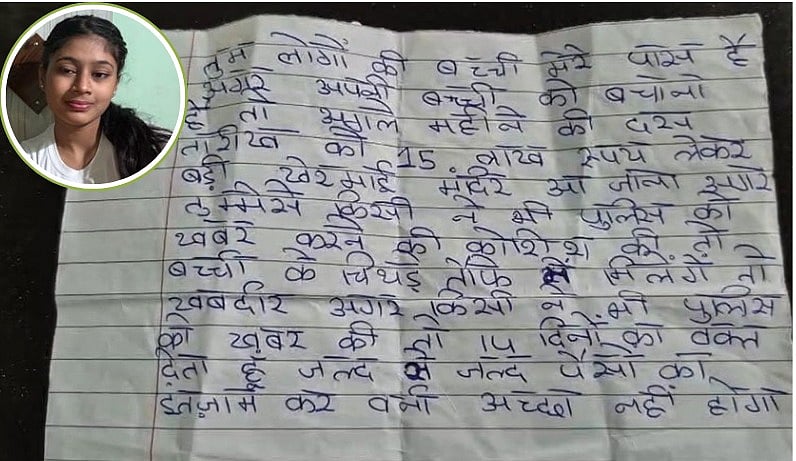 तुम लोगों की बच्ची मेरे पास है
अगर अपनी बच्ची को बचाना
है तो अगले महीने की दस
तारीख को 15 लाख रूपय लेकर
बड़ी खेरमाई मंदिर आ जाना अगर
तुममेसे किसी ने भी पुलिस को
खबर करने की कोशिश की तो
बच्ची के चिथड़े तोफे में मिलगें तो
खबदार अगर किसी ने भी पुलिस
को खबर की तो 14 दिनों का वक्त
देता हूँ जल्द से जल्द पैसो का
इंतज़ाम कर वर्ना अच्छा नहीं होगा